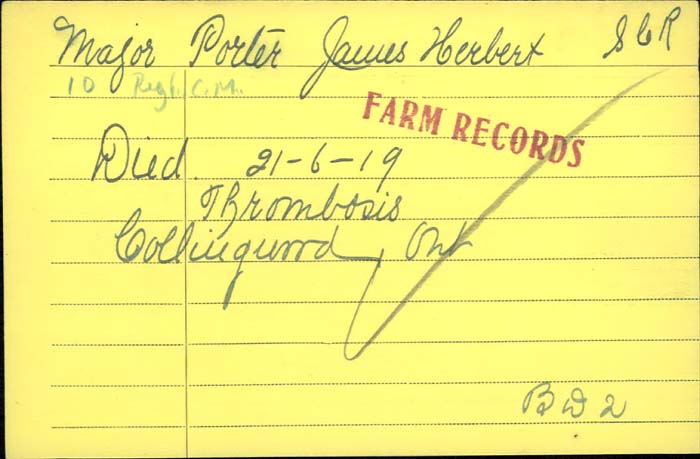 Major Porter James Herbert S C R
10 Regt. C.M.
FARM RECORDS
Died. 21-6-19
Thrombosis
Collingwood, Ont
B D 2